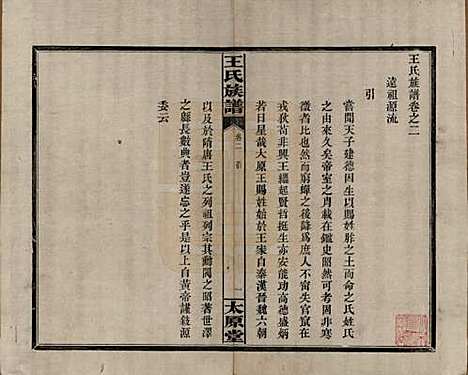 王氏族譜卷之二
遠祖源流
引
嘗聞天子建德因生以賜姓胙之土而命之氏姓氏
之由來久矣帝室之胄載在鑑史昭然可考因非寒
微者比然而窮蟬之後降爲庶人不失官宸在
戎狄苟非興王繼起賢挡挺生亦安能功高德盛炳
若日星哉太原王賜姓始於王宋自秦漢晉魏六朝
以及於隋唐王氏之列祖列宗其勳閥之昭著世澤
之縣長數典者豈遂忘之乎是以上自黃帝謹敍源
委云
王氏族譜
卷二
一
太原堂